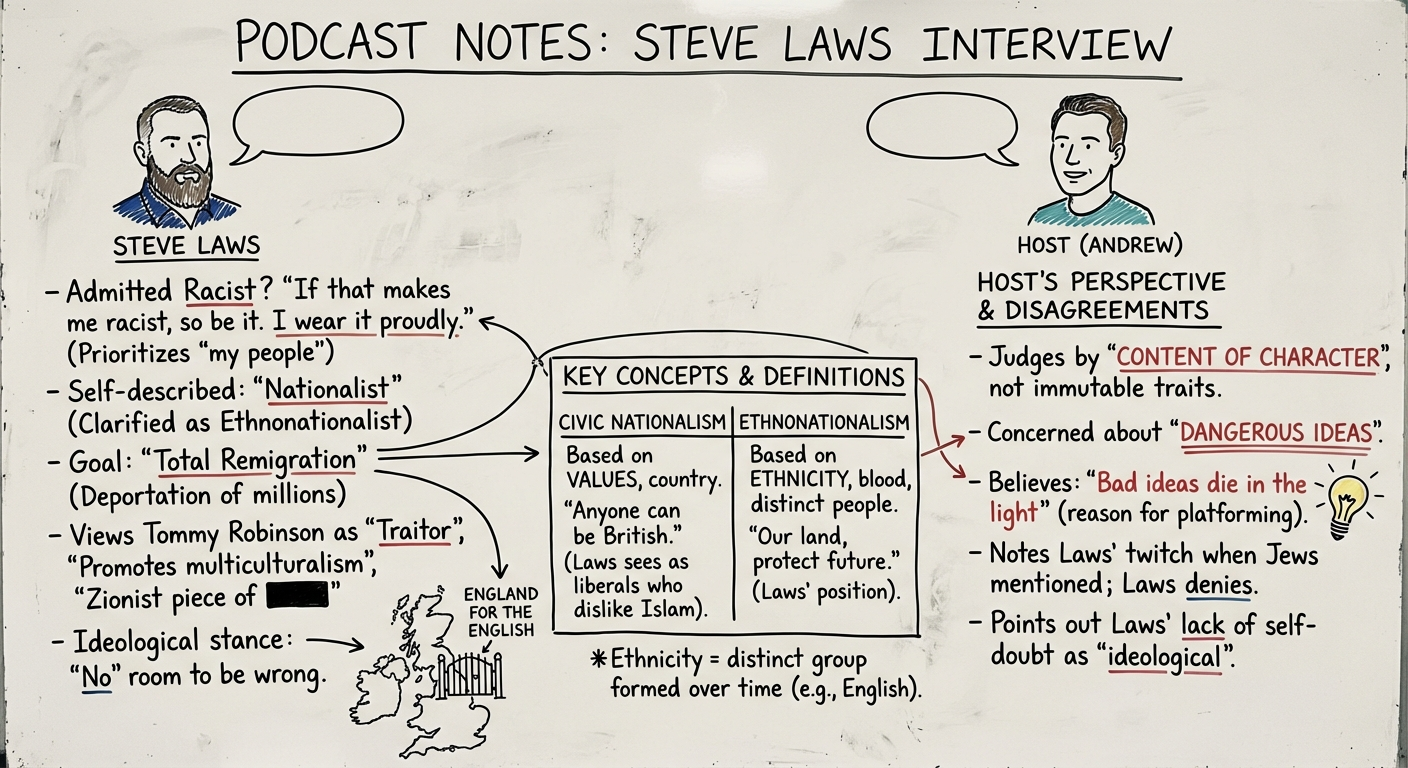 PODCAST NOTES: STEVE LAWS INTERVIEW
STEVE LAWS
– Admitted Racist? “If that makes
me racist, so be it. I wear it proudly.”
(Prioritizes “my people”)
– Self-described: “Nationalist”
(Clarified as Ethnonationalist)
– Goal: “Total Remigration”
(Deportation of millions)
– Views Tommy Robinson as “Traitor”,
“Promotes multiculturalism”,
“Zionist piece of ”
– Ideological stance:
“No” room to be wrong.
ENGLAND
FOR THE
ENGLISH
KEY CONCEPTS & DEFINITIONS
CIVIC NATIONALISM
Based on
VALUES, country.
“Anyone can
be British.”
(Laws sees as
liberals who
dislike Islam).
ETHNONATIONALISM
Based on
ETHNICITY, blood,
distinct people.
“Our land,
protect future.”
(Laws’ position).
*Ethnicity = distinct group
formed over time (e.g., English).
HOST (ANDREW)
HOST’S PERSPECTIVE
& DISAGREEMENTS
– Judges by “CONTENT OF CHARACTER”,
not immutable traits.
– Concerned about “DANGEROUS IDEAS”.
– Believes: “Bad ideas die in the
light” (reason for platforming).
– Notes Laws’ twitch when Jews
mentioned; Laws denies.
– Points out Laws’ lack of self-
doubt as “ideological”.